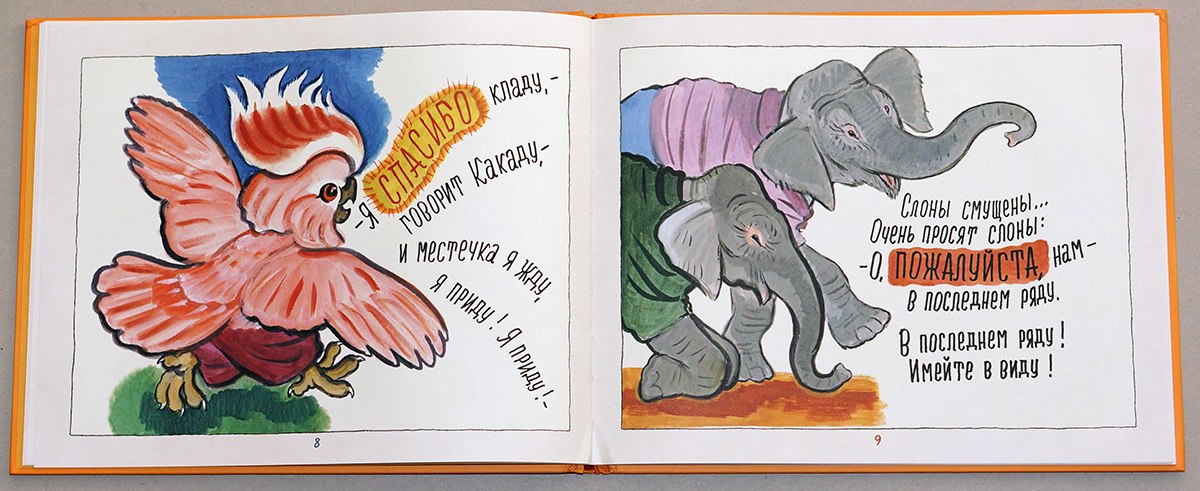 -Я СПАСИБО кладу,-
говорит Какаду,-
и местечка я жду,
Я приду! Я приду!-
8
Слоны смущены...
Очень просят слоны:
-О, ПОЖАЛУЙСТА, нам-
в последнем ряду.
В последнем ряду!
Имейте в виду!
9